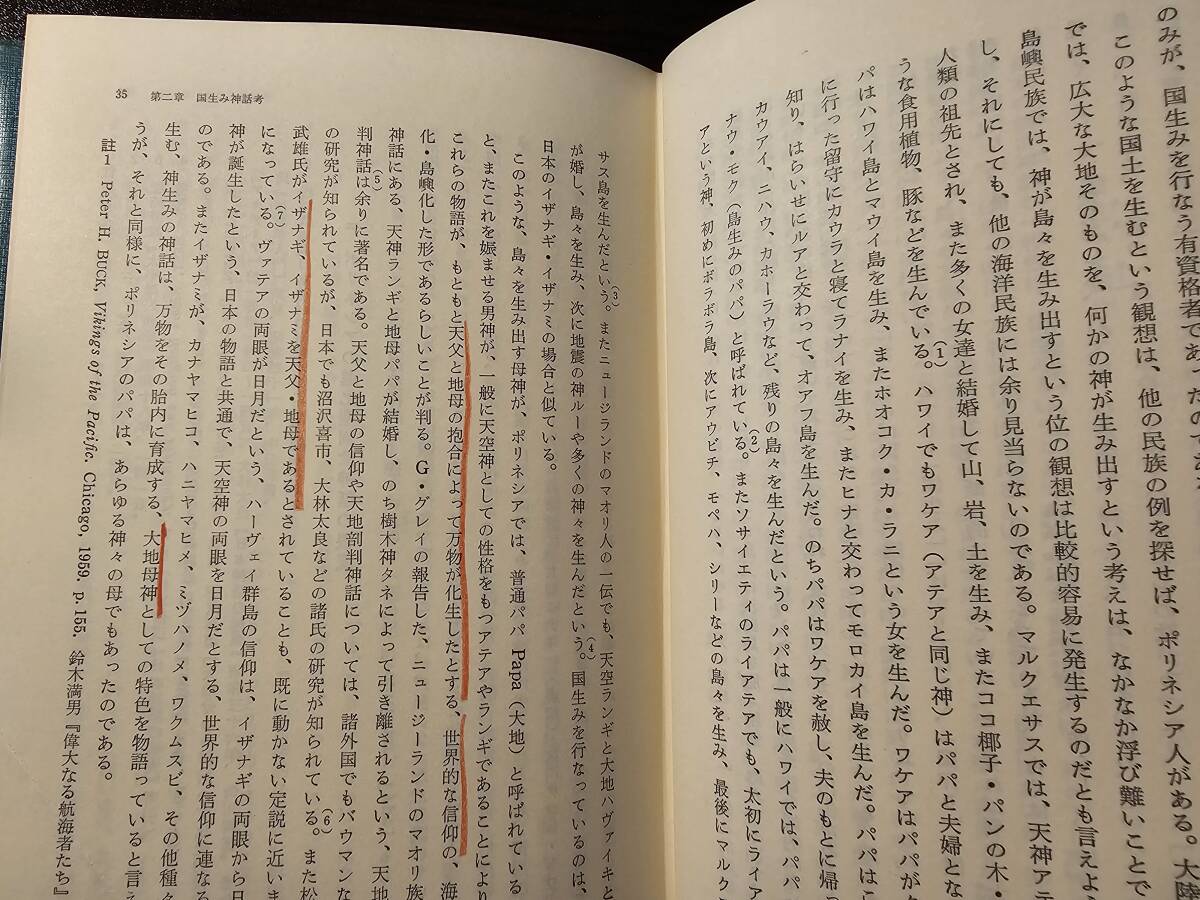 のみが、国生みを行なう有資格者であったのである
このような国土を生むという観想は、他の民族の例を探せば、ポリネシア人がある。大陸
では、広大な大地そのものを、何かの神が生み出すという考えは、なかなか浮び難いことで
島嶼民族では、神が島々を生み出すという位の観想は比較的容易に発生するのだとも言えよ
し、それにしても、他の海洋民族には余り見当らないのである。マルクエサスでは、天神アテ
人類の祖先とされ、また多くの女達と結婚して山、岩、土を生み、またココ椰子・パンの木・
うな食用植物、豚などを生んでいる。(1)ハワイでもワケア（アテアと同じ神）はパパと夫婦とな
パはハワイ島とマウイ島を生み、またホオコク・カ・ラニという女を生んだ。ワケアはパパが
に行った留守にカウラと寝てラナイを生み、またヒナと交わってモロカイ島を生んだ。パパはこ
知り、はらいせにルアと交わって、オアフ島を生んだ。のちパパはワケアを赦し、夫のもとに帰
カウアイ、ニハウ、カホーラウなど、残りの島々を生んだという。パパは一般にハワイでは、パパ
ナウ・モク（島生みのパパ）と呼ばれている。(2)またソサイエティのライアテアでも、太初にライア
アという神、初めにボラボラ島、次にアウピチ、モペハ、シリーなどの島々を生み、最後にマルク
サス島を生んだという。(3)またニュージランドのマオリ人の一伝でも、天空ランギと大地ハヴァイキと
が婚し、島々を生み、次に地震の神ルーや多くの神々を生んだという。(4)国生みを行なっているのは、
日本のイザナギ・イザナミの場合と似ている。
このような、島々を生み出す母神が、ポリネシアでは、普通パパ Papa（大地）と呼ばれている
と、またこれを娠ませる男神が、一般に天空神としての性格をもつアテアやランギであることにより
これらの物語が、もともと天父と地母の抱合によって万物が化生したとする、世界的な信仰の、海
化・島嶼化した形であるらしいことが判る。G・グレイの報告した、ニュージーランドのマオリ族
神話にある、天神ランギと地母パパが結婚し、のち樹木神タネによって引き離されるという、天地
判神話は余りに著名である。(5)天父と地母の信仰や天地剖判神話については、諸外国でもバウマンな
の研究が知られているが、日本でも沼沢喜市、大林太良などの諸氏の研究が知られている。(6)また松
武雄氏がイザナギ、イザナミを天父・地母であるとされていることも、既に動かない定説に近いま
になっている。(7)ヴァテアの両眼が日月だという、ハーヴェイ群島の信仰は、イザナギの両眼から日
神が誕生したという、日本の物語と共通で、天空神の両眼を日月だとする、世界的な信仰に連なる
のである。またイザナミが、カナヤマヒコ、ハニヤマヒメ、ミヅハノメ、ワクムスビ、その他種々
生む、神生みの神話は、万物をその胎内に育成する、大地母神としての特色を物語っていると言え
うが、それと同様に、ポリネシアのパパは、あらゆる神々の母でもあったのである。
註1 Peter H. BUCK, Vikings of the Pacific, Chicago, 1959. p. 155. 鈴木満男『偉大なる航海者たち』
35 第二章 国生み神話考